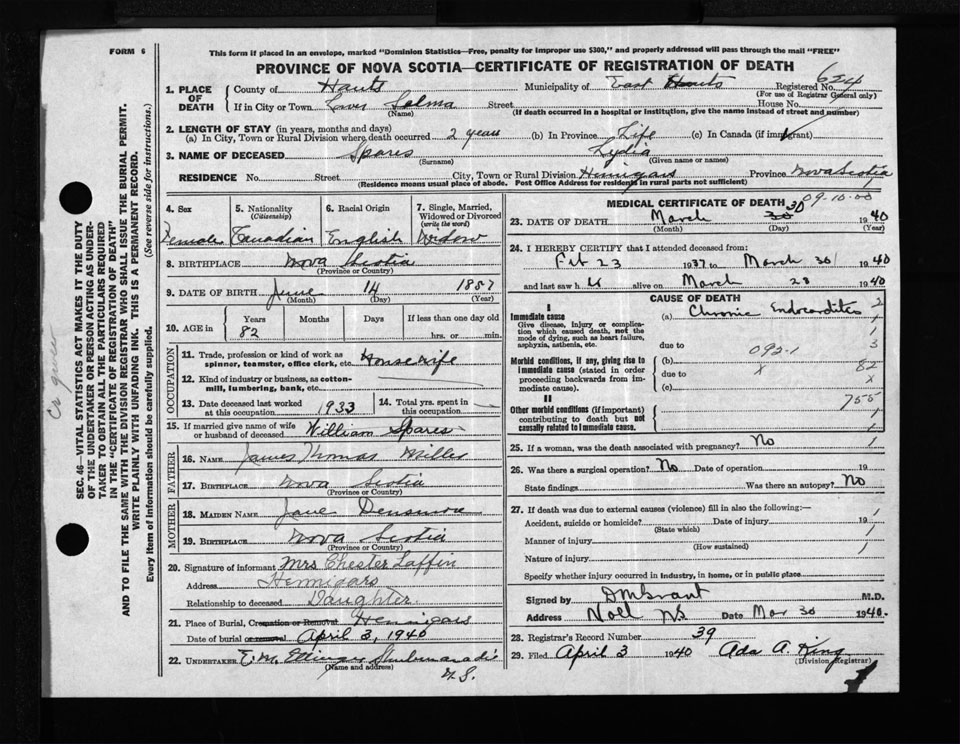 FORM 6
This form if placed in an envelope, marked "Dominion Statistics—Free, penalty for improper use $300," and properly addressed will pass through the mail "FREE"
PROVINCE OF NOVA SCOTIA—CERTIFICATE OF REGISTRATION OF DEATH
1. PLACE OF DEATH
County of Hants Municipality of East Hants Registered No. 624
(For use of Registrar General only)
If in City or Town Selma Street House No.
(Name) (If death occurred in a hospital or institution, give the name instead of street and number)
2. LENGTH OF STAY (in years, months and days)
(a) In City, Town or Rural Division where death occurred 2 years (b) In Province Life (c) In Canada (if immigrant)
3. NAME OF DECEASED Spares Lydia
(Surname) (Given name or names)
RESIDENCE No. Street City, Town or Rural Division Province Nova Scotia
(Residence means usual place of abode. Post Office Address for residents in rural parts not sufficient)
4. Sex Female
5. Nationality (Citizenship) Canadian
6. Racial Origin English
7. Single, Married, Widowed or Divorced (write the word) Widow
8. BIRTHPLACE Nova Scotia
(Province or Country)
9. DATE OF BIRTH June 14 1857
(Month) (Day) (Year)
10. AGE in Years Months Days If less than one day old
82 hrs. or min.
OCCUPATION
11. Trade, profession or kind of work as spinner, teamster, office clerk, etc. Housewife
12. Kind of industry or business, as cotton-mill, lumbering, bank, etc.
13. Date deceased last worked at this occupation 1933
14. Total yrs. spent in this occupation
15. If married give name of wife or husband of deceased William Spares
FATHER
16. NAME James Thomas Miller
17. BIRTHPLACE Nova Scotia
(Province or Country)
MOTHER
18. MAIDEN NAME Jane Densmore
19. BIRTHPLACE Nova Scotia
(Province or Country)
20. Signature of informant Mrs Chester Laffin
Address Hennigars
Relationship to deceased Daughter
21. Place of Burial, Cremation or Removal Hennigars
Date of burial or removal April 3, 1940
22. UNDERTAKER E.M. Ettinger Shubenacadie
(Name and address)
N.S.
MEDICAL CERTIFICATE OF DEATH
09-10-00
23. DATE OF DEATH March 30 1940
(Month) (Day) (Year)
24. I HEREBY CERTIFY that I attended deceased from:
Feb 23 1937 to March 30 1940
and last saw h alive on March 23 1940
CAUSE OF DEATH
I
Immediate cause
Give disease, injury or complication which caused death, not the mode of dying, such as heart failure, asphyxia, asthenia, etc.
(a) Chronic Endocarditis
due to
Morbid conditions, if any, giving rise to immediate cause (stated in order proceeding backwards from immediate cause).
092.1
(b)
due to x
(c)
II
Other morbid conditions (if important) contributing to death but not causally related to immediate cause.
2
1
3
82
x
755
1
1
25. If a woman, was the death associated with pregnancy? No
26. Was there a surgical operation? No Date of operation 19
State findings Was there an autopsy? No
27. If death was due to external causes (violence) fill in also the following:—
Accident, suicide or homicide? Date of injury 19
(State which)
Manner of injury
(How sustained)
Nature of injury
Specify whether injury occurred in industry, in home, or in public place
Signed by M.D.
Address Noel NS Date Mar 30 1940.
28. Registrar's Record Number 39
29. Filed April 3 1940 Ada A. King
(Division Registrar)
SEC. 46—VITAL STATISTICS ACT MAKES IT THE DUTY
OF THE UNDERTAKER OR PERSON ACTING AS UNDER-
TAKER TO OBTAIN ALL THE PARTICULARS REQUIRED
IN THE "CERTIFICATE OF REGISTRATION OF DEATH"
AND TO FILE THE SAME WITH THE DIVISION REGISTRAR WHO SHALL ISSUE THE BURIAL PERMIT.
WRITE PLAINLY WITH UNFADING INK. THIS IS A PERMANENT RECORD.
Every item of information should be carefully supplied. (See reverse side for instructions.)